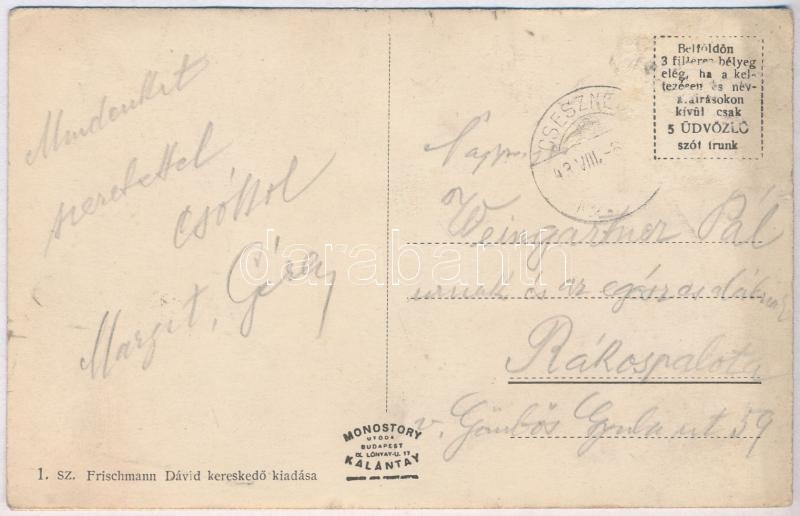 Mindenkit
szeretettel
csókol
Margit, Géza
1. sz. Frischmann Dávid kereskedő kiadása
MONOSTORY
UTÓDA
BUDAPEST
IX. LÓNYAY-U. 17
KALÁNTAY
CSESZNE
43 VIII.
Belföldön
3 filléres bélyeg
elég, ha a kel-
tezésen és név-
aláírásokon
kívül csak
5 ÜDVÖZLŐ
szót írunk
Weingartner Pál
urnak és az egész
Rákospalota
v. Gömbös Gyula ut 59
darabanth